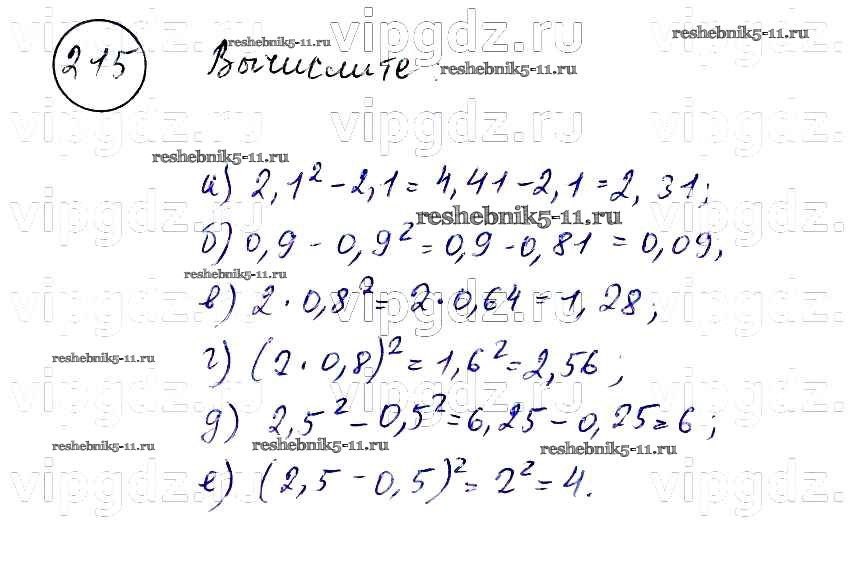 vipgdz.ru vipgdz.ru vipgdz.ru
reshebnik5-11.ru reshebnik5-11.ru
215 Вычислите:
reshebnik5-11.ru
vipgdz.ru vipgdz.ru vipgdz.ru
reshebnik5-11.ru
а) 2,1² - 2,1 = 4,41 - 2,1 = 2,31;
vipgdz.ru vipgdz.ru vipgdz.ru
reshebnik5-11.ru
б) 0,9 - 0,9² = 0,9 - 0,81 = 0,09,
reshebnik5-11.ru
в) 2 · 0,8² = 2 · 0,64 = 1,28;
vipgdz.ru vipgdz.ru vipgdz.ru
reshebnik5-11.ru
г) (2 · 0,8)² = 1,6² = 2,56;
vipgdz.ru vipgdz.ru vipgdz.ru
д) 2,5² - 0,5² = 6,25 - 0,25 = 6;
reshebnik5-11.ru reshebnik5-11.ru reshebnik5-11.ru
е) (2,5 - 0,5)² = 2² = 4.
vipgdz.ru vipgdz.ru vipgdz.ru